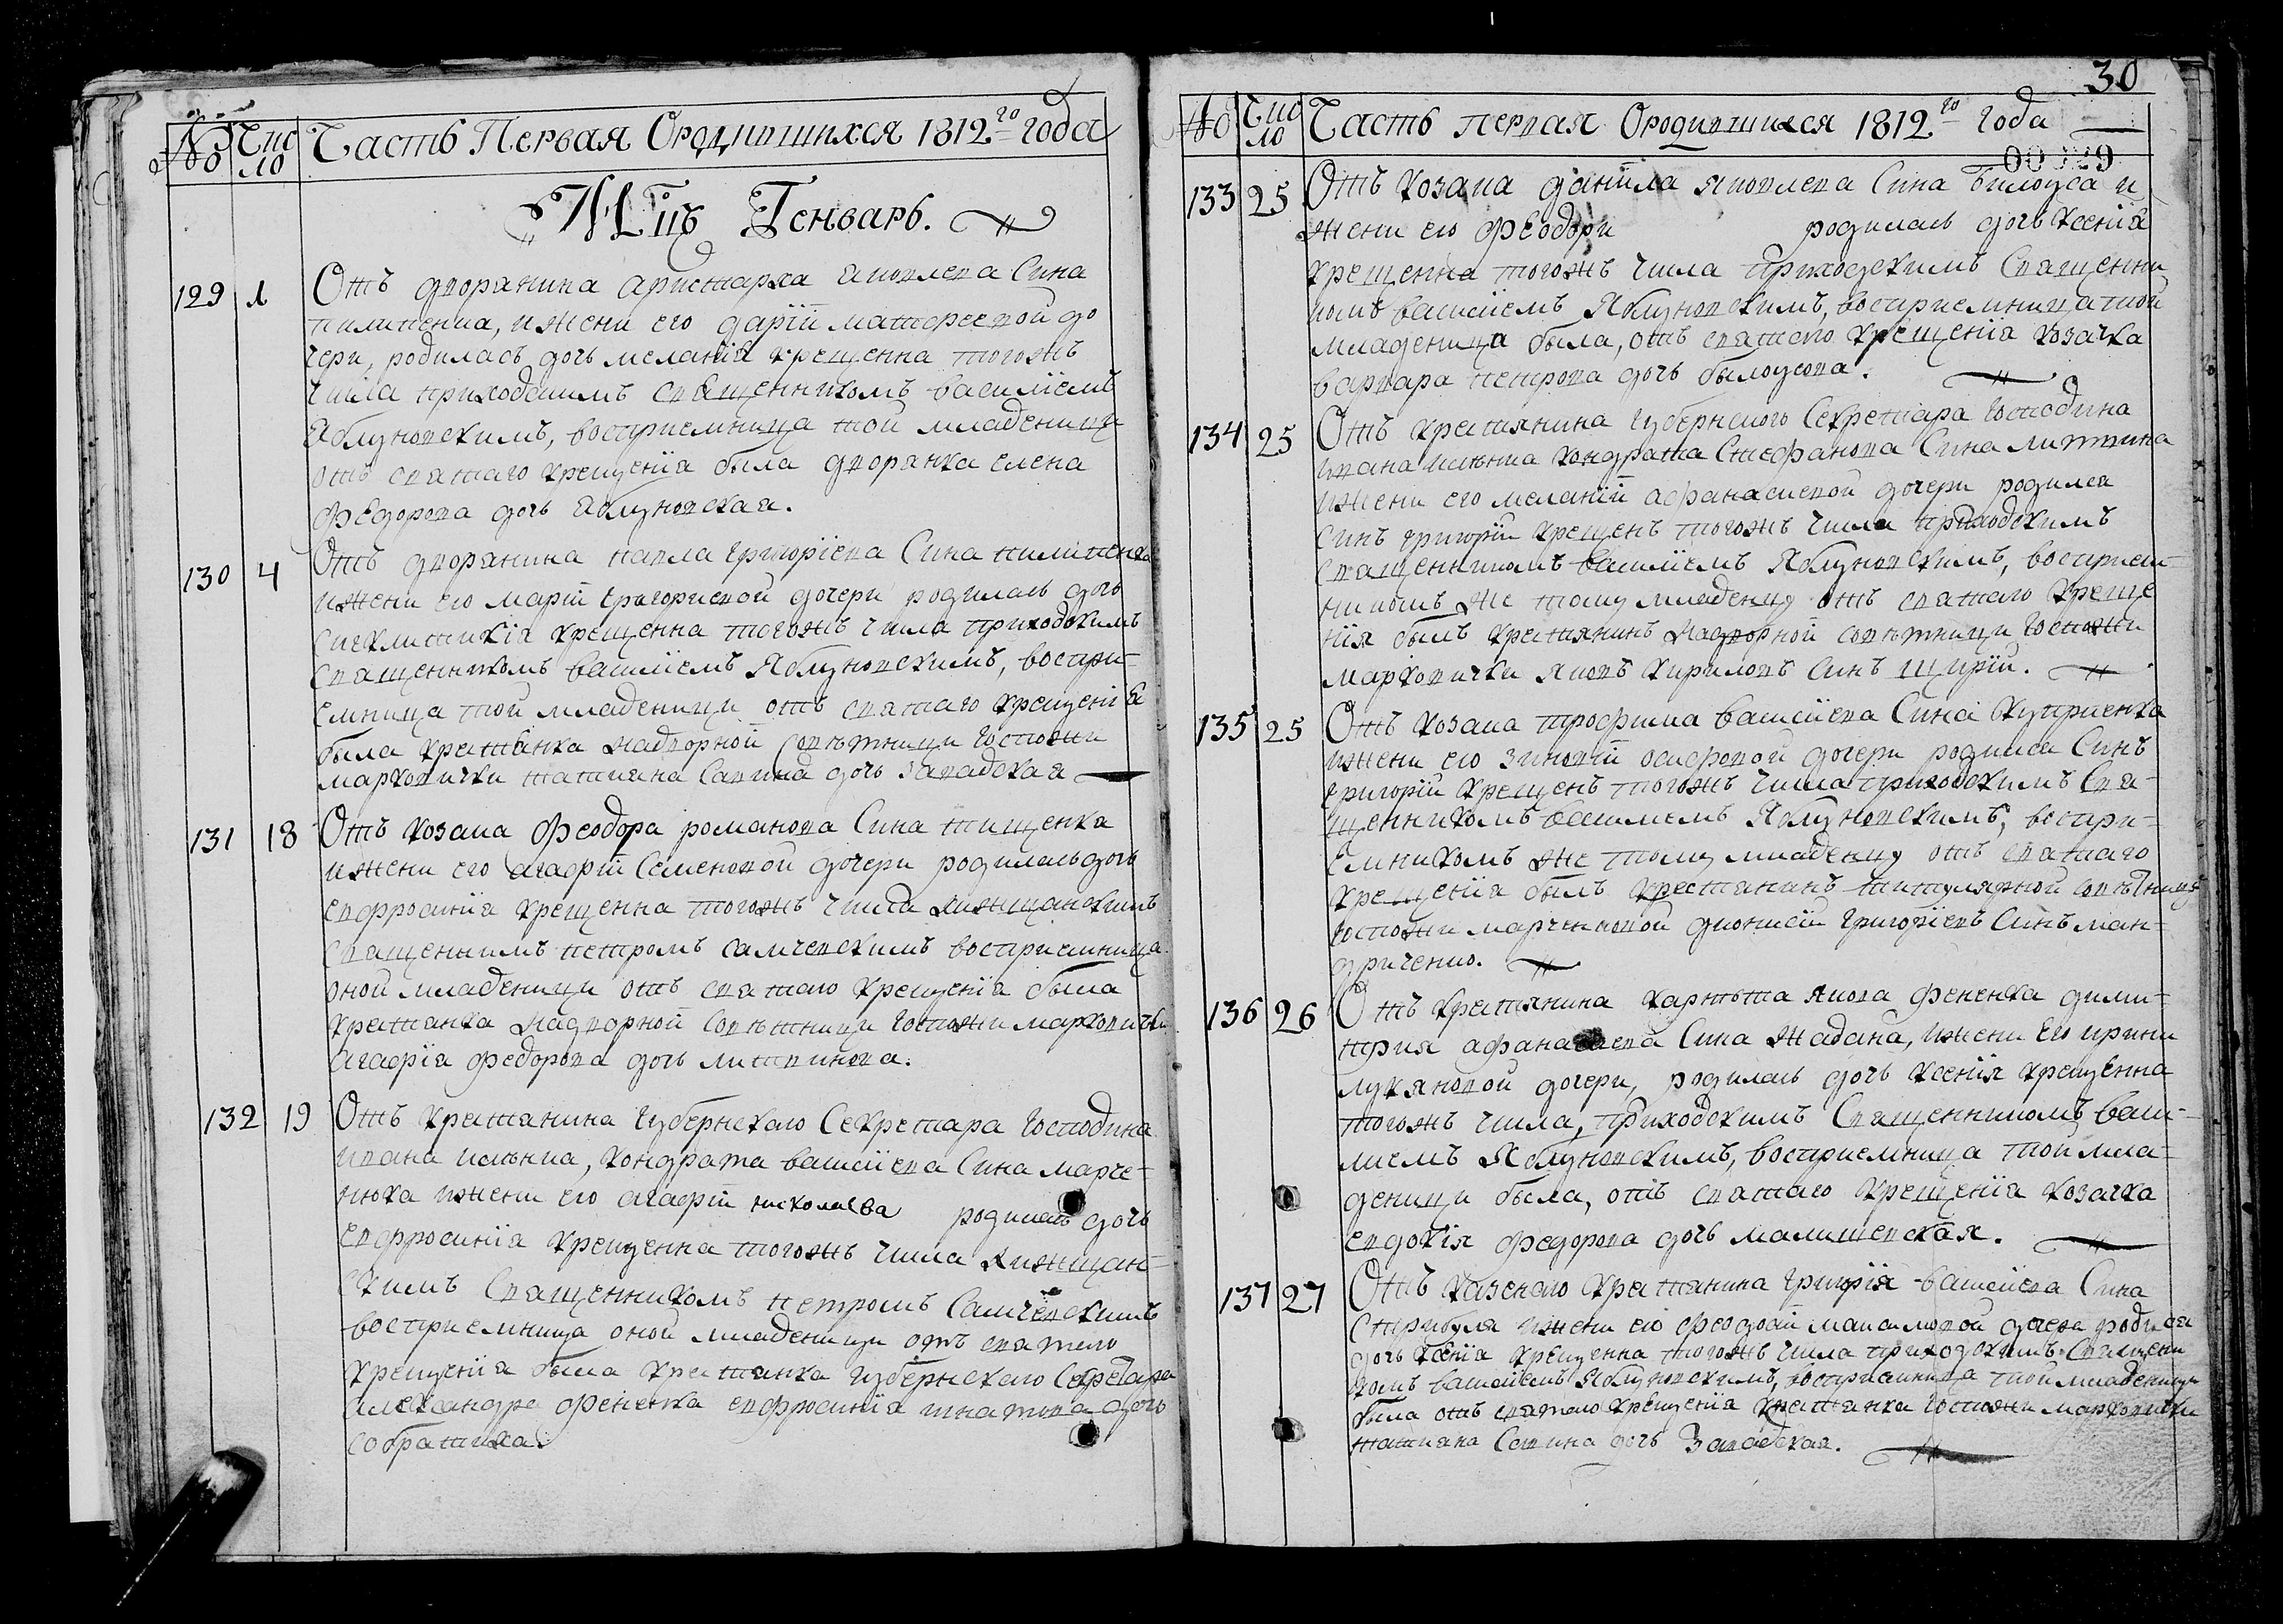 № Число Часть Первая О родившихся 1812го года
Мцъ Генварь.
129 1 Отъ дворянина аристарха яковлева Сина
пилипенка, ижени его дарїи матфеевой до
чери, родилась дочь меланїя крещенна тогожъ
числа приходскимъ священникомъ василїемъ
яблуновскимъ, восприемница той младеници
отъ святаго крещенїя была дворянка елена
Федорова дочь яблуновская.
130 4 Отъ дворянина павла григорїева Сина пилипенка
ижени его марїи григориевой дочери родилась дочь
синклитикїя крещенна тогожъ числа приходскимъ
священникомъ василїемъ Яблуновскимъ, воспри-
емница той младеници отъ святаго крещенїя
была крестянка надворной совѣтници Госпожи
марковички татияна Савина дочь западская
131 18 Отъ козака Феодора романова Сина тищенка
ижени его агафїи Семеновой дочери родилась дочь
евфросинїя крещенна тогожъ числа
священникомъ петромъ самчевскимъ восприемница
оной младеници отъ святаго крещенїя была
крестянка надворной совѣтници Госпожи марковички
агафїя федорова дочь литвинова.
132 19 Отъ крестянина Губернскаго Секретара Господина
ивана илѣнка, кондрата василїева Сина марче-
нюка ижени его агафїи николаева родилась дочь
евфросинїя крещенна тогожъ числа
скимъ Священникомъ петромъ Самчевскимъ
восприемница оной младеници отъ святаго
крещенїя была крестянка губернскаго Секретара
александра фененка евфросинїя игнатова дочь
собратиха.
30
№ Число Часть первая О родившихся 1812го Года
00329
133 25 Отъ козака данїила яковлева Сина билоуса и
жени его Феодори родилась дочь ксенїя
крещенна тогожъ числа приходскимъ Священни
комъ василїемъ Яблуновскимъ, восприемница той
младеница была, отъ святаго крещенїя козачка
варвара петрова дочь былоусова.
134 25 Отъ крестянина губернского Секретара Господина
ивана илѣнка кондрата Стефанова Сина литвина
ижени его меланїи афанасиевой дочери родился
синъ григорїй крещенъ тогожъ числа приходскимъ
священникомъ василїемъ Яблуновскимъ, восприем-
никомъ же тому младенцу отъ святаго креще
нїя былъ крестянинъ надворной совѣтници Госпожи
марковички яковъ кириловъ синъ щирїй.
135 25 Отъ козака трофима василїева Сина куприенка
ижени его зиновїи осифовой дочери родился Синъ
григорїй крещенъ тогожъ числа приходскимъ Свя-
щенникомъ василиемъ Яблуновскимъ, воспри-
емникомъ же тому младенцу отъ святаго
крещенїя былъ крестянинъ титулярной совѣтници
госпожи марченковой дионисїй григорїевъ Синъ ман-
дриченко.
136 26 Отъ крестянина якова фененка дими-
трия афанасиева Сина жадана, ижени его ирини
лукяновой дочери, родилась дочь ксенїя крещенна
тогожъ числа, приходскимъ Священникомъ васи-
лиемъ Яблуновскимъ, восприемница той мла-
деници была, отъ святаго крещенїя козачка
евдокїя федорова дочь малишевская.
137 27 Отъ казенаго крестянина григорїя василїева Сина
Стрибуля ижени его феодосїи максимовой дочери родилася
дочь ксенїя крещенна тогожъ числа приходскимъ Священи
комъ василїемъ Яблуновскимъ, восприемница той младеници
была отъ святаго крещенїя крестянка Госпожи марковички
татияна Савина дочь Западская.